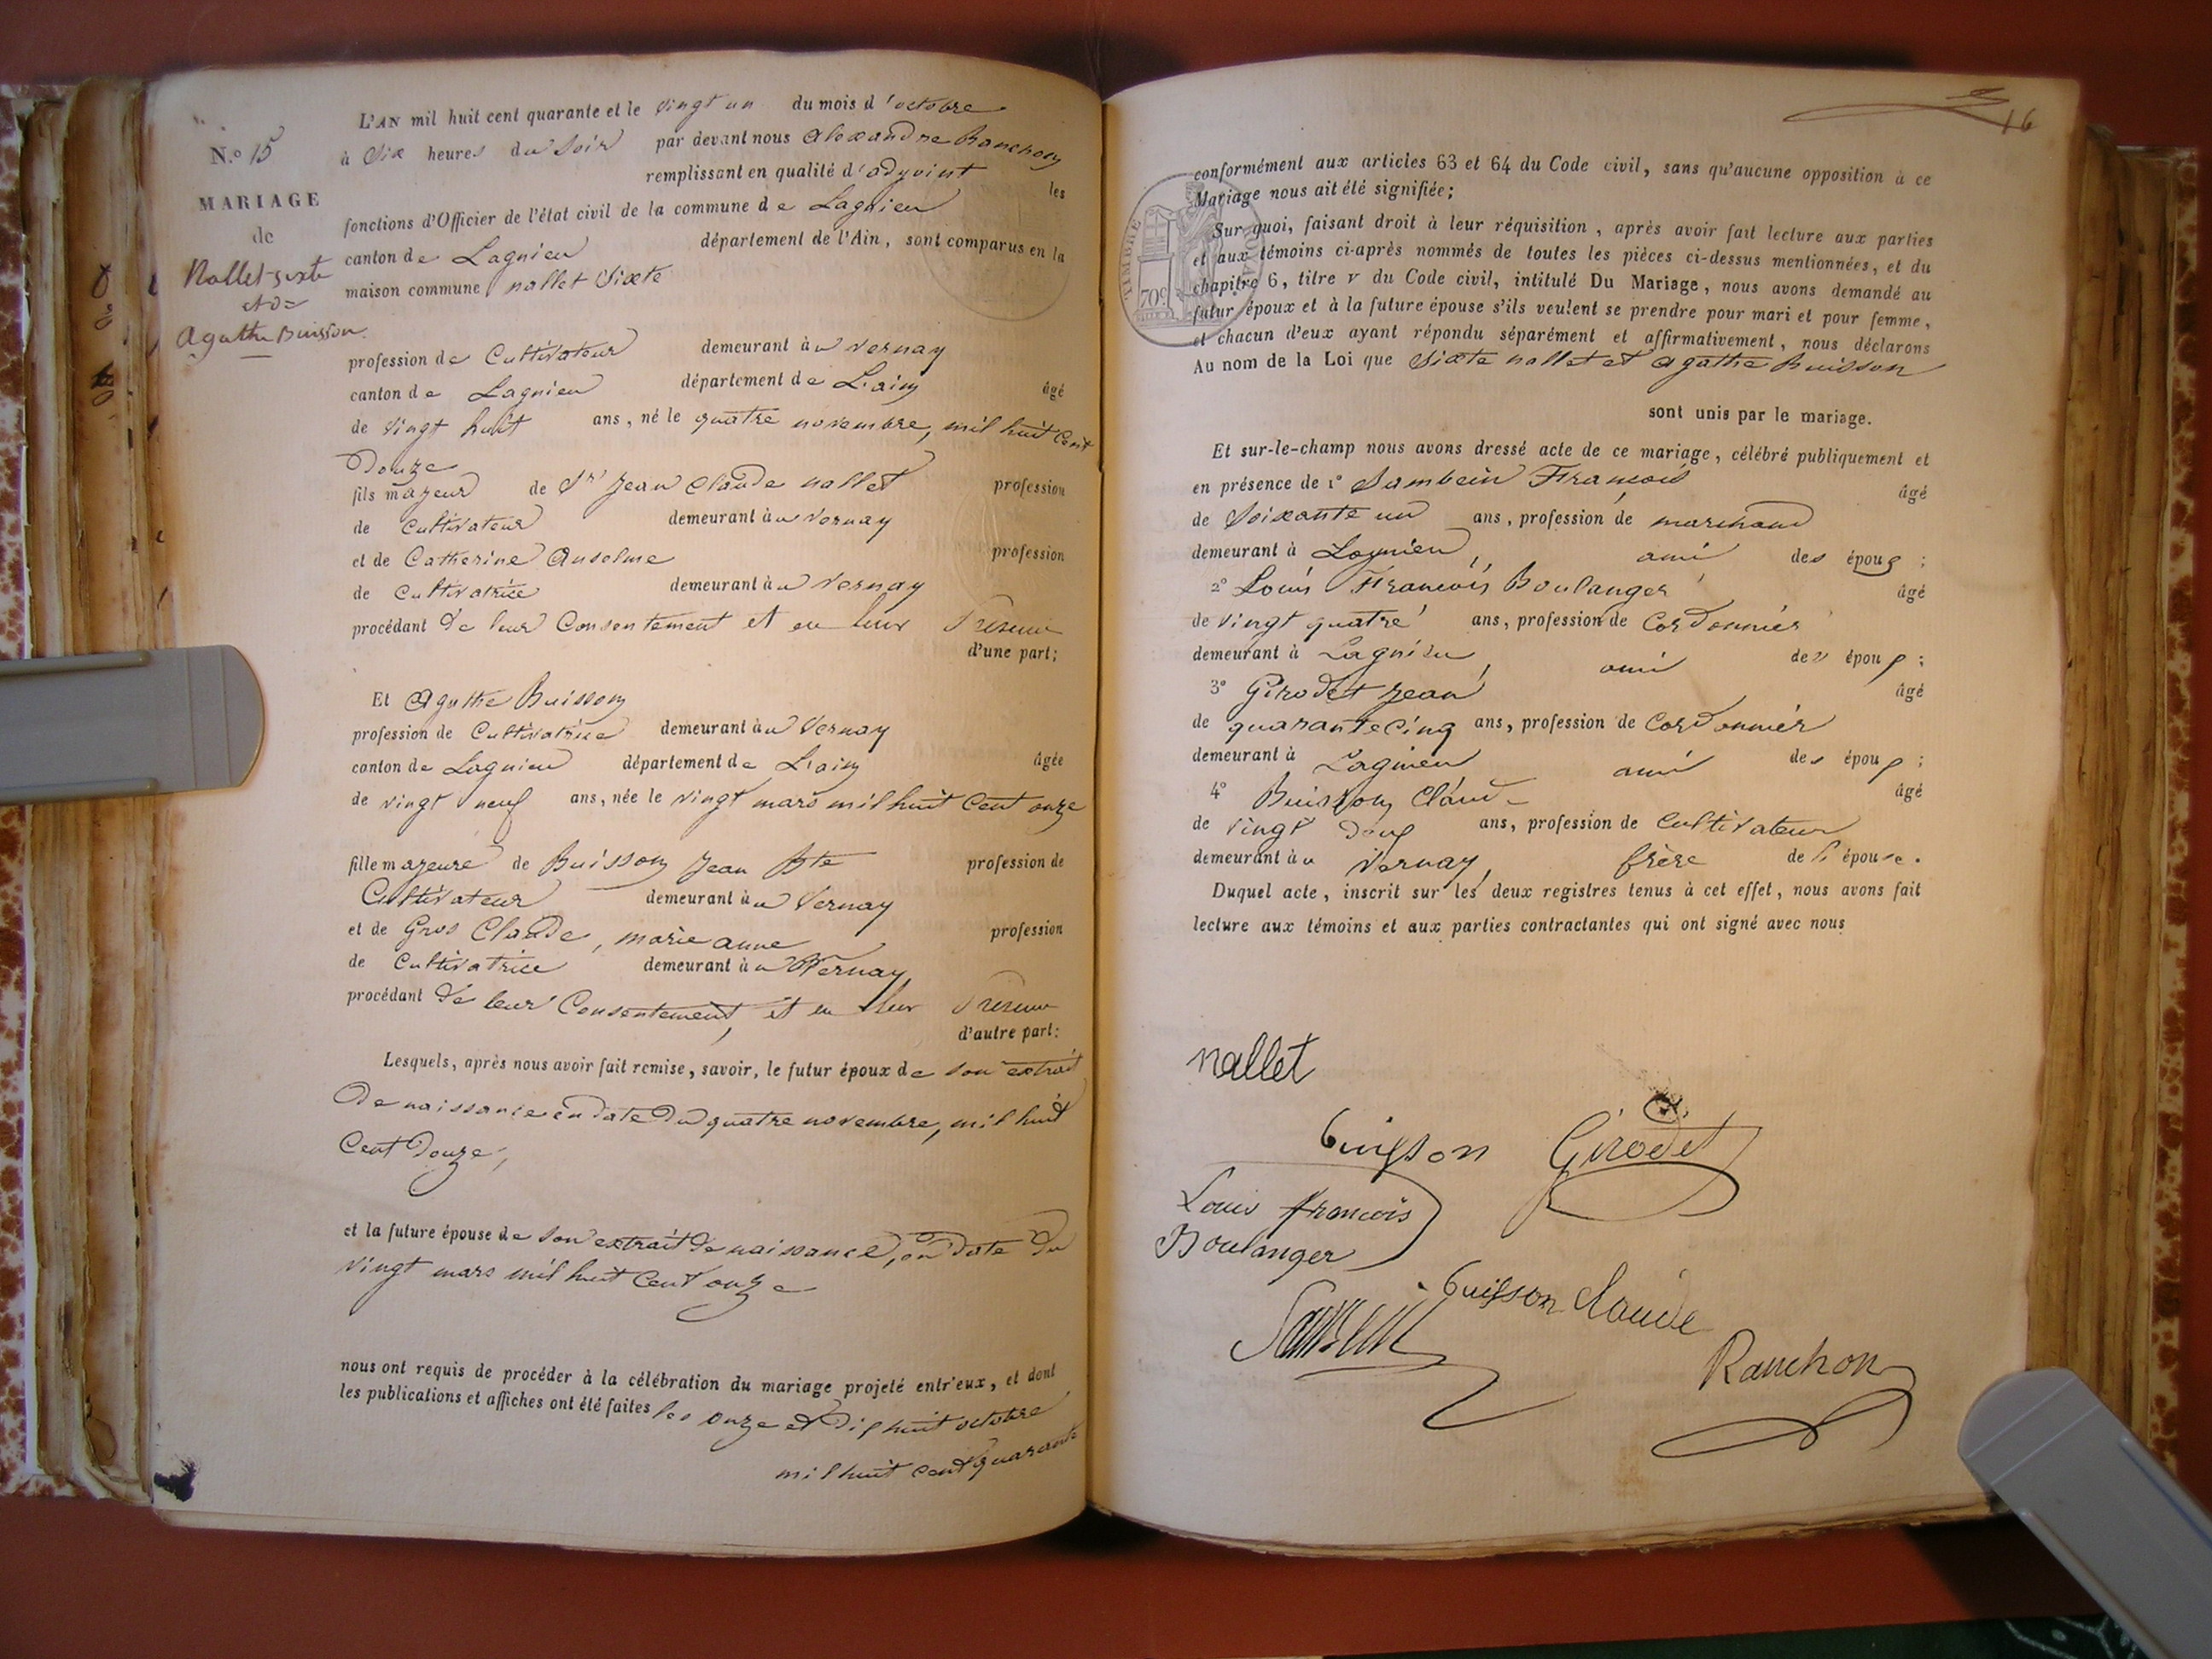 N.º 15
MARIAGE
de
Nallet Sixte
et de
Agathe Buisson
L'AN mil huit cent quarante et le vingt un du mois d'octobre
à Six heures du Soir par devant nous Alexandre Ranchon
remplissant en qualité d'adjoint les
fonctions d'Officier de l'état civil de la commune de Lagnieu
canton de Lagnieu département de l'Ain, sont comparus en la
maison commune nallet Sixte
profession de Cultivateur demeurant àu vernay
canton de Lagnieu département de L'ain âgé
de vingt huit ans, né le quatre novembre, mil huit Cent
Douze
fils majeur de Sr Jean Claude nallet profession
de Cultivateur demeurant àu vernay
et de Catherine Anselme profession
de Cultivatrice demeurant àu vernay
procédant de leur Consentement et en leur Présence
d'une part;
Et Agathe Buisson
profession de Cultivatrice demeurant àu Vernay
canton de Lagnieu département de L'ain âgée
de vingt neuf ans, née le vingt mars mil huit Cent onze
fille majeure de Buisson Jean Bte profession de
Cultivateur demeurant àu Vernay
et de Gros Claude, marie anne profession
de Cultivatrice demeurant àu Vernay,
procédant de leur Consentement, et en leur Présence
d'autre part:
Lesquels, après nous avoir fait remise, savoir, le futur époux de son extrait
De naissance en date du quatre novembre, mil huit
Cent Douze,
et la future épouse de son extrait de naissance, en date du
vingt mars mil huit Cent onze
nous ont requis de procéder à la célébration du mariage projeté entr'eux, et dont
les publications et affiches ont été faites les onze et dix huit octobre
mil huit cent quarante
16
conformément aux articles 63 et 64 du Code civil, sans qu'aucune opposition à ce
Mariage nous ait été signifiée;
TIMBRE ROYAL
70c
Sur quoi, faisant droit à leur réquisition, après avoir fait lecture aux parties
et aux témoins ci-après nommés de toutes les pièces ci-dessus mentionnées, et du
chapitre 6, titre V du Code civil, intitulé Du Mariage, nous avons demandé au
futur époux et à la future épouse s'ils veulent se prendre pour mari et pour femme,
et chacun d'eux ayant répondu séparément et affirmativement, nous déclarons
Au nom de la Loi que Sixte nallet et Agathe Buisson
sont unis par le mariage.
Et sur-le-champ nous avons dressé acte de ce mariage, célébré publiquement et
en présence de 1º Sambein François âgé
de Soixante un ans, profession de marchand
demeurant à Lagnieu, ami des époux;
2º Louis François Boulanger âgé
de vingt quatre ans, profession de Cordonnier
demeurant à Lagnieu, ami des époux;
3º Girodet Jean âgé
de quarante Cinq ans, profession de Cordonnier
demeurant à Lagnieu ami des époux;
4º Buisson Claude âgé
de vingt deux ans, profession de Cultivateur
demeurant àu Vernay, frère de l'épouse.
Duquel acte, inscrit sur les deux registres tenus à cet effet, nous avons fait
lecture aux témoins et aux parties contractantes qui ont signé avec nous
nallet
buisson Girodet
Louis françois
Boulanger
buisson Claude
Sambein
Ranchon